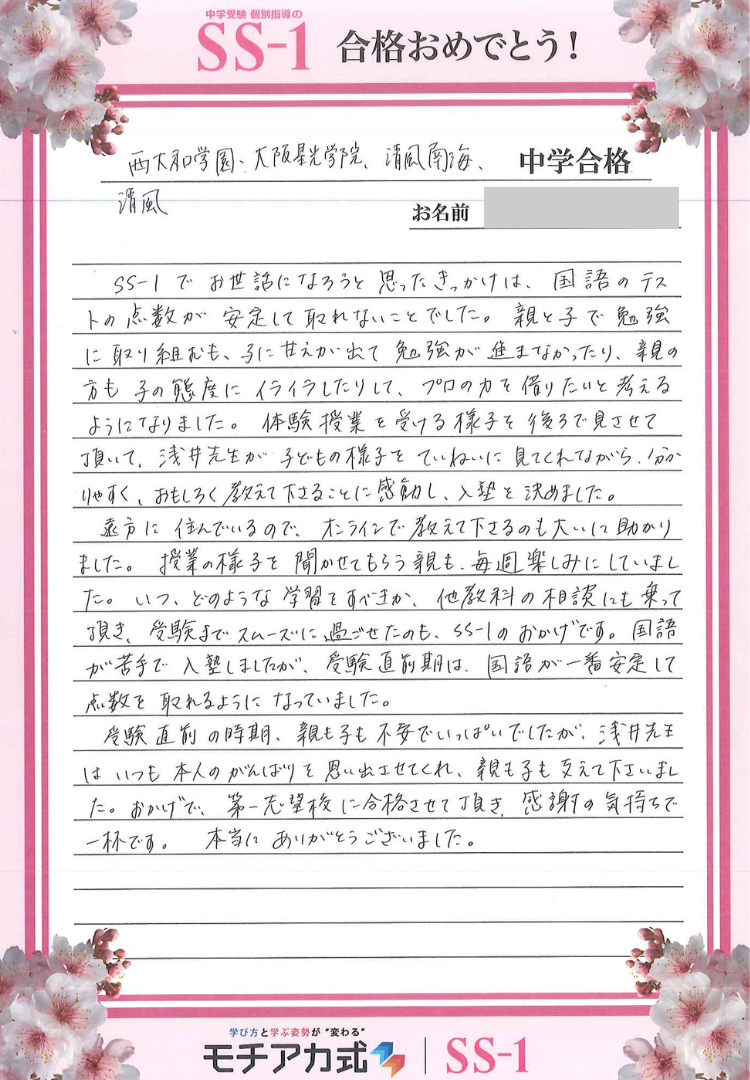 中学受験 個別指導の
SS-1 合格おめでとう!
西大和学園、大阪星光学院、清風南海、 中学合格
清風
お名前
SS-1でお世話になろうと思ったきっかけは、国語のテス
トの点数が安定して取れないことでした。親と子で勉強
に取り組むも、子に甘えが出て勉強が進まなかったり、親の
方も子の態度にイライラしたりして、プロの力を借りたいと考える
ようになりました。体験授業を受ける様子を後ろで見させて
頂いて、浅井先生が子どもの様子をていねいに見てくれながら、分か
りやすく、おもしろく教えて下さることに感動し、入塾を決めました。
遠方に住んでいるので、オンラインで教えて下さるのも大いに助かり
ました。授業の様子を聞かせてもらう親も、毎週楽しみにしていまし
た。いつ、どのような学習をすべきか、他教科の相談にも乗って
頂き、受験までスムーズに過ごせたのも、SS-1のおかげです。国語
が苦手で入塾しましたが、受験直前期は、国語が一番安定して
点数を取れるようになっていました。
受験直前の時期、親も子も不安でいっぱいでしたが、浅井先生
はいつも本人のがんばりを思い出させてくれ、親も子も支えて下さいまし
た。おかげで、第一志望校に合格させて頂き、感謝の気持ちで
一杯です。 本当にありがとうございました。
学び方と学ぶ姿勢が"変わる"
モチアカ式 | SS-1